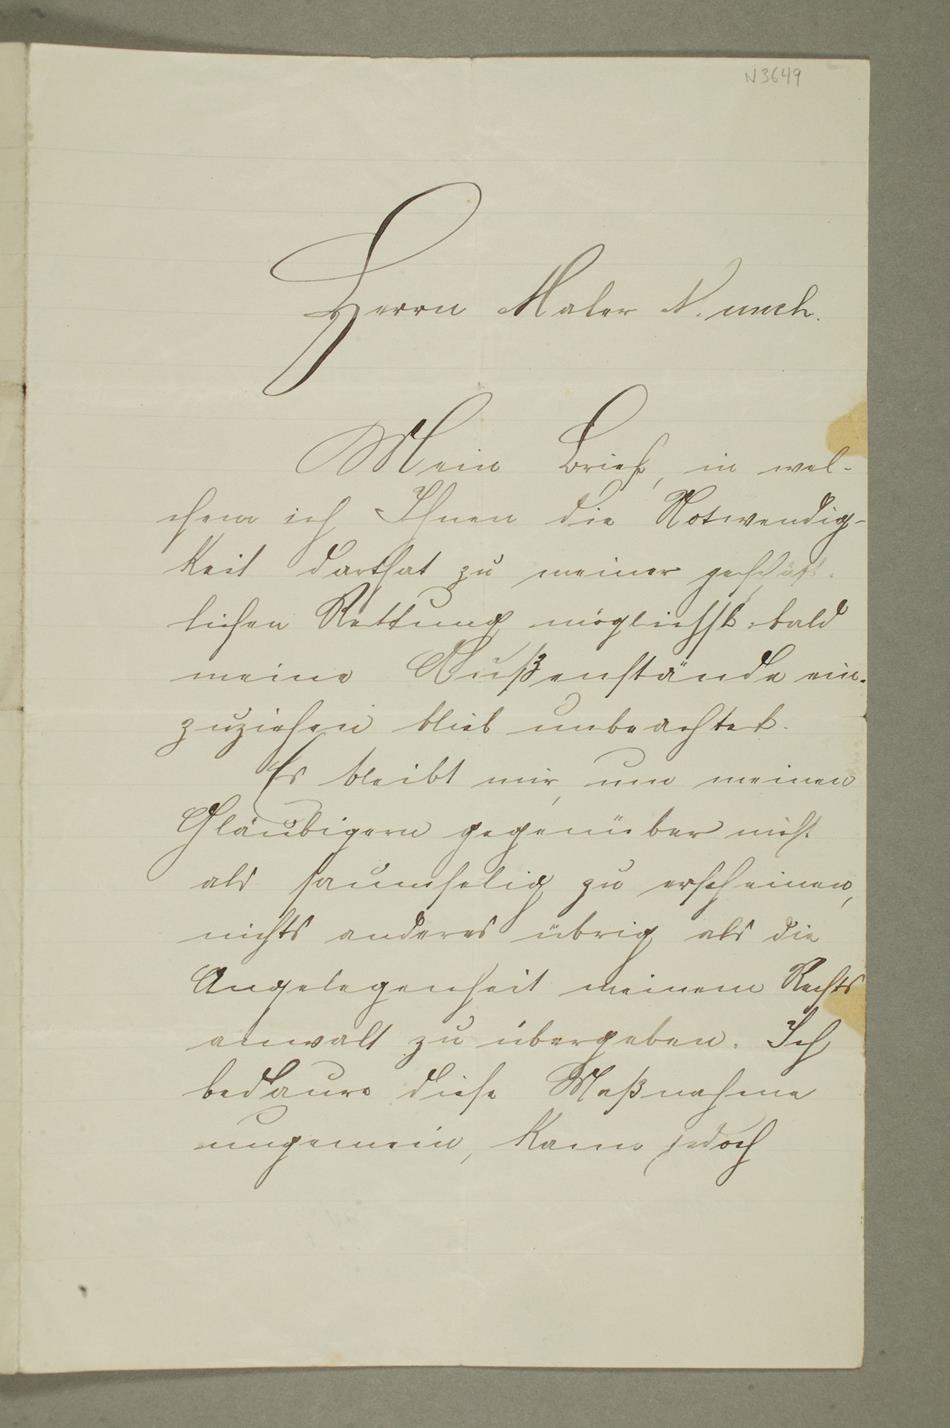 N3649
Herrn Maler Munch.
Mein Brief, in wel-
chem ich Ihnen die Notwendig-
keit darthat zu meiner geschäft-
lichen Rettung möglichst bald
meine Außenstände ein-
zuziehen blieb unbeachtet.
Es bleibt mir, um meinen
Gläubigern gegenüber nicht
als saumselig zu erscheinen,
nichts anderes übrig als die
Angelegenheit meinem Rechts
anwalt zu übergeben. Ich
bedaure diese Maßnahme
ungemein, kann jedoch